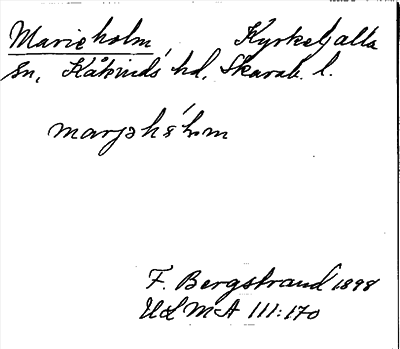 Marieholm, Kyrkefjalla
sn, Kåkinds hd, Skarab. l.
marjəhólm
F. Bergstrand 1898
ULMA 111:170